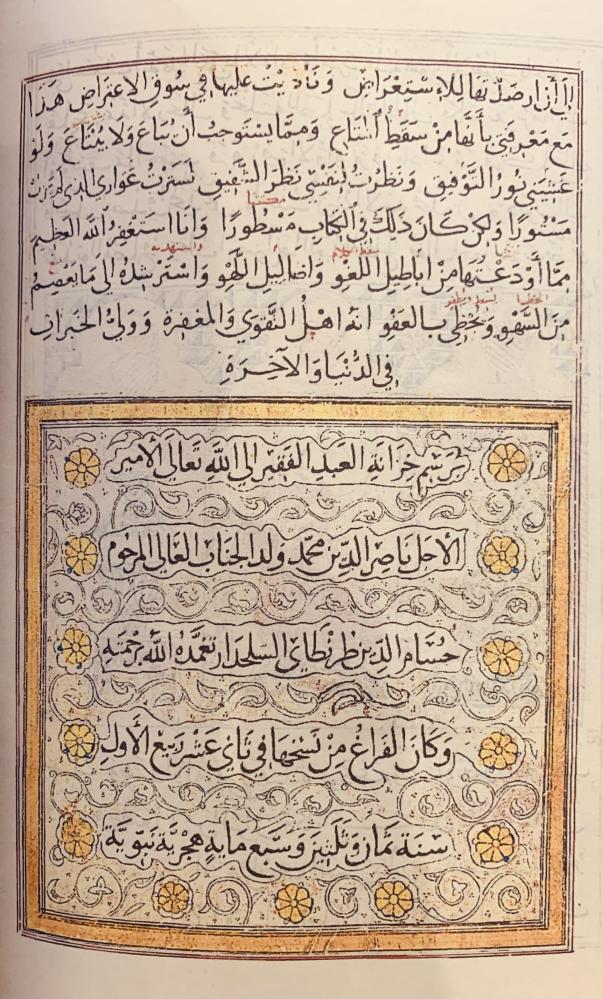 إلى أن ارصدتها للاستعراض وناديت عليها في سوق الاعتراض هذا
مع معرفتي بأنها من سقط المتاع ومما يستوجب أن يباع ولا يبتاع ولو
غشيني نور التوفيق ونظرت لنفسي نظر الشفيق لسترت عواري الذي لم يزل
مستورا ولكن كان ذلك في الكتاب مسطورا وانا استغفر الله العظيم
مما أودعتها من اباطيل اللغو واضاليل اللهو واسترشده إلى ما يعصم
من السهو ويحظي بالعفو انه اهل التقوى والمغفرة وولي الخيرات
في الدنيا والآخرة
برسم خزانة العبد الفقير الى الله تعالى الامير
الاجل ناصر الدين محمد ولد الجناب العالي المرحوم
حسام الدين طرنطاي السلحدار تغمده الله برحمته
وكان الفراغ من نسخها في ثاني عشر ربيع الأول
سنة ثمان وثلثين وسبع ماية هجرية نبوية